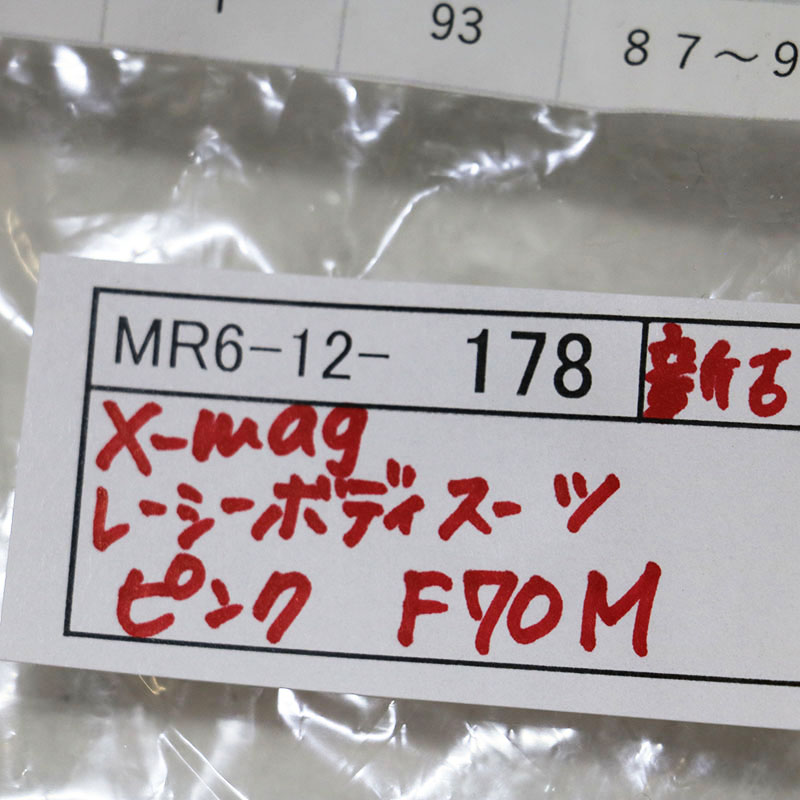 93 87～9
MR6-12- 178 新古
X-mag
レーシーボディスーツ
ピンク F70M